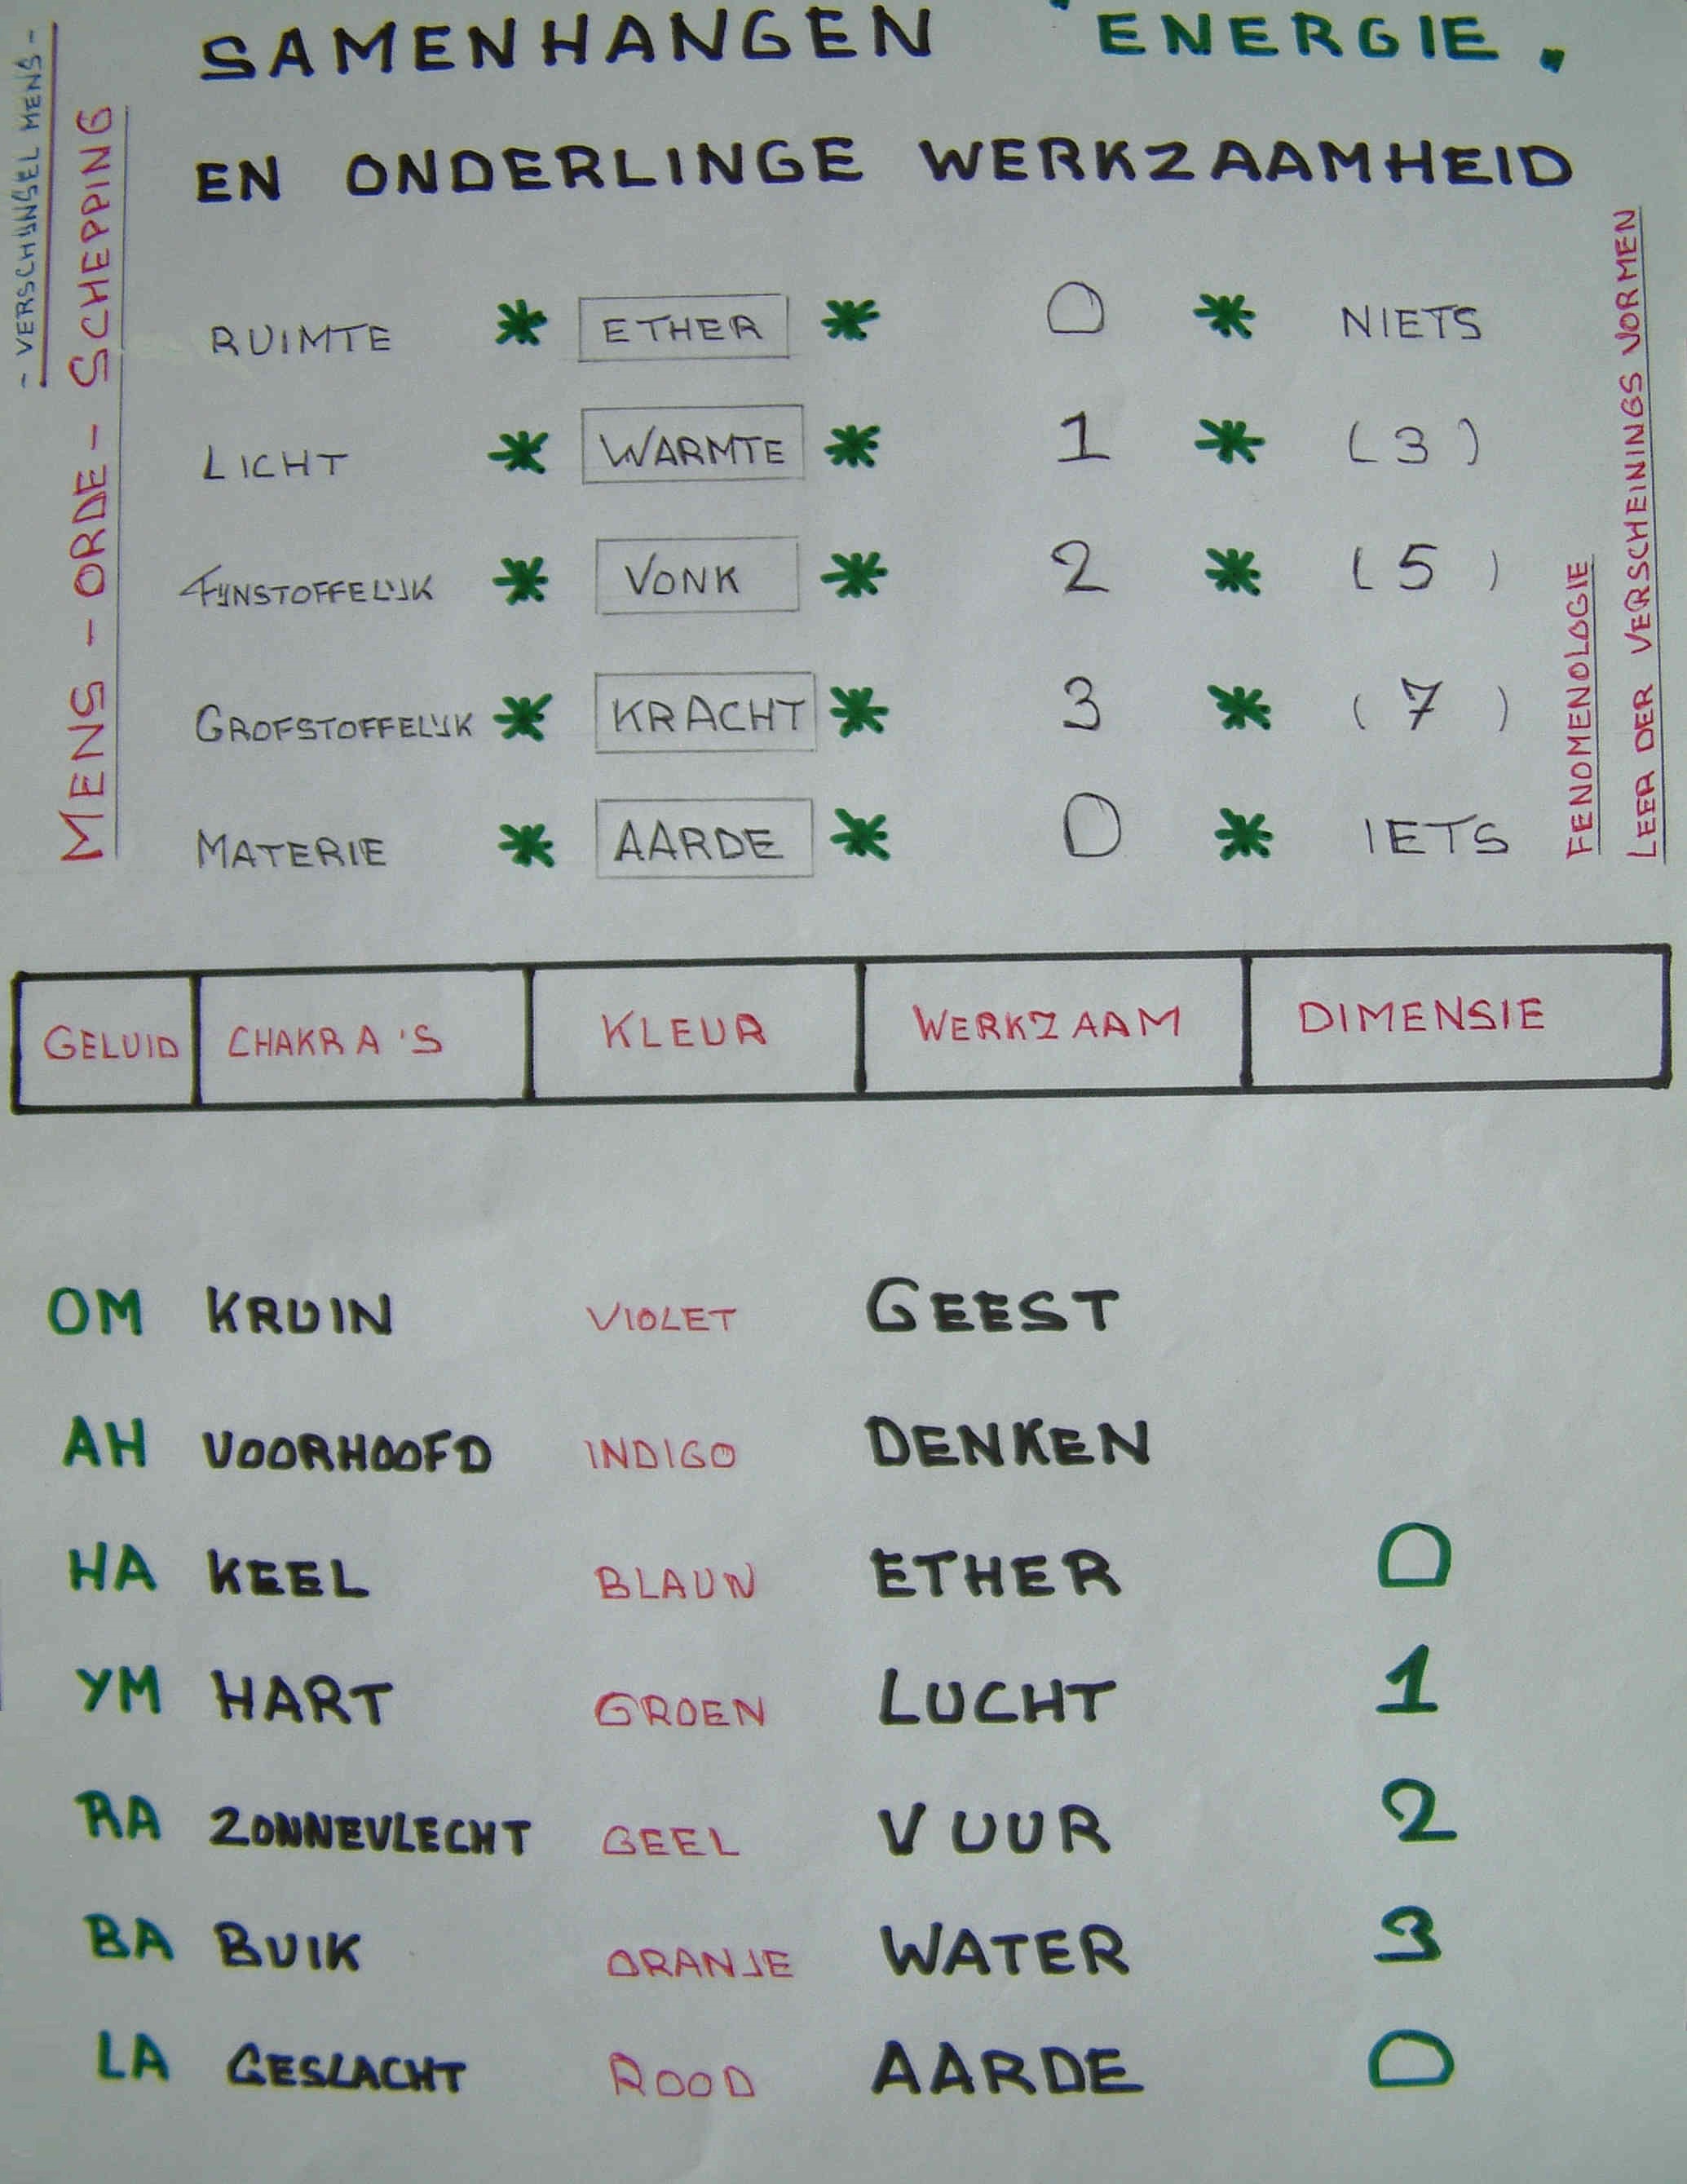 SAMENHANGEN ENERGIE.
EN ONDERLINGE WERKZAAMHEID
- VERSCHIJNSEL MENS -
MENS - ORDE - SCHEPPING
RUIMTE * ETHER * 0 * NIETS
LICHT * WARMTE * 1 * (3)
FIJNSTOFFELIJK * VONK * 2 * (5)
GROFSTOFFELIJK * KRACHT * 3 * (7)
MATERIE * AARDE * 0 * IETS
FENOMENOLOGIE
LEER DER VERSCHEININGS VORMEN
GELUID CHAKRA'S KLEUR WERKZAAM DIMENSIE
OM KRUIN VIOLET GEEST
AH VOORHOOFD INDIGO DENKEN
HA KEEL BLAUW ETHER 0
YM HART GROEN LUCHT 1
RA ZONNEVLECHT GEEL VUUR 2
BA BUIK ORANJE WATER 3
LA GESLACHT ROOD AARDE 0